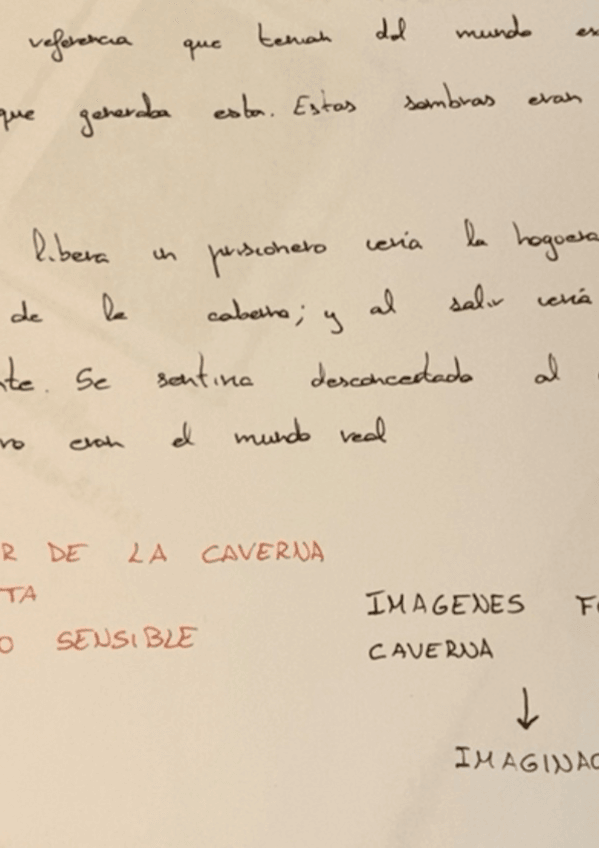 referencia que tenian del mundo ex
que generaba esta. Estas sombras eran
libera un prisionero veria la hoguera
de la caberna; y al salir veria
nte. Se sentiria desconcertado al
ro eran el mundo real
R DE LA CAVERNA
TA
O SENSIBLE
IMAGENES F
CAVERNA
↓
IMAGINAC